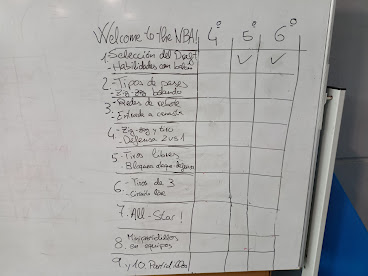 Welcome to the NBA! 4º 5º 6º
1. Selección del Draft ✓ ✓
- Habilidades con balón
2. - Tipos de pases
- Zig-zag botando
3. - Redes de rebote
- Entrada a canasta
4. - Zig-zag y tiro
- Defensa 2vs1
5. - Tiros libres
- Bloqueo
6. - Tiros de 3
- Circuito
7. - All-Star!
8. - Minipartidillos
en equipos
9. y 10.